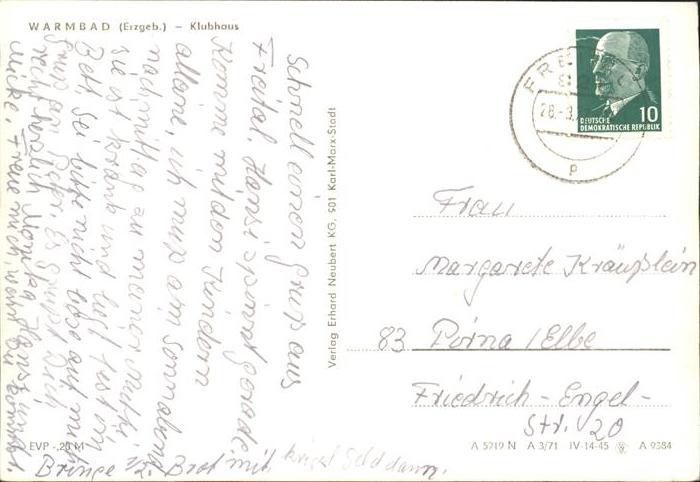 WARMBAD (Erzgeb.) – Klubhaus
Schnell einen Gruß aus
Freital, Hansi spinnt gerade.
Komme mit den Kindern
allane, ich muß am Sonnabend
nachmittag zu meiner Mutti,
sie ist krank und liegt fest im
Bett, sei bitte nicht böse auf mich
Gruß an Es grüßt Dich
recht herzlich Monika, Hans und
Micke, Freue mich, wenn Du kommst.
Bringe 1/2 Brot mit, kriegst Geld dann.
Verlag Erhard Neubert KG, 901 Karl-Marx-Stadt
FRE
28.-3.
p
10
DEUTSCHE
DEMOKRATISCHE REPUBLIK
Frau
Margarete Kräußlein
83 Pirna / Elbe
Friedrich-Engel-
Str. 20
EVP -,20 M
A 5219 N A 3/71 IV-14-45 A 9384